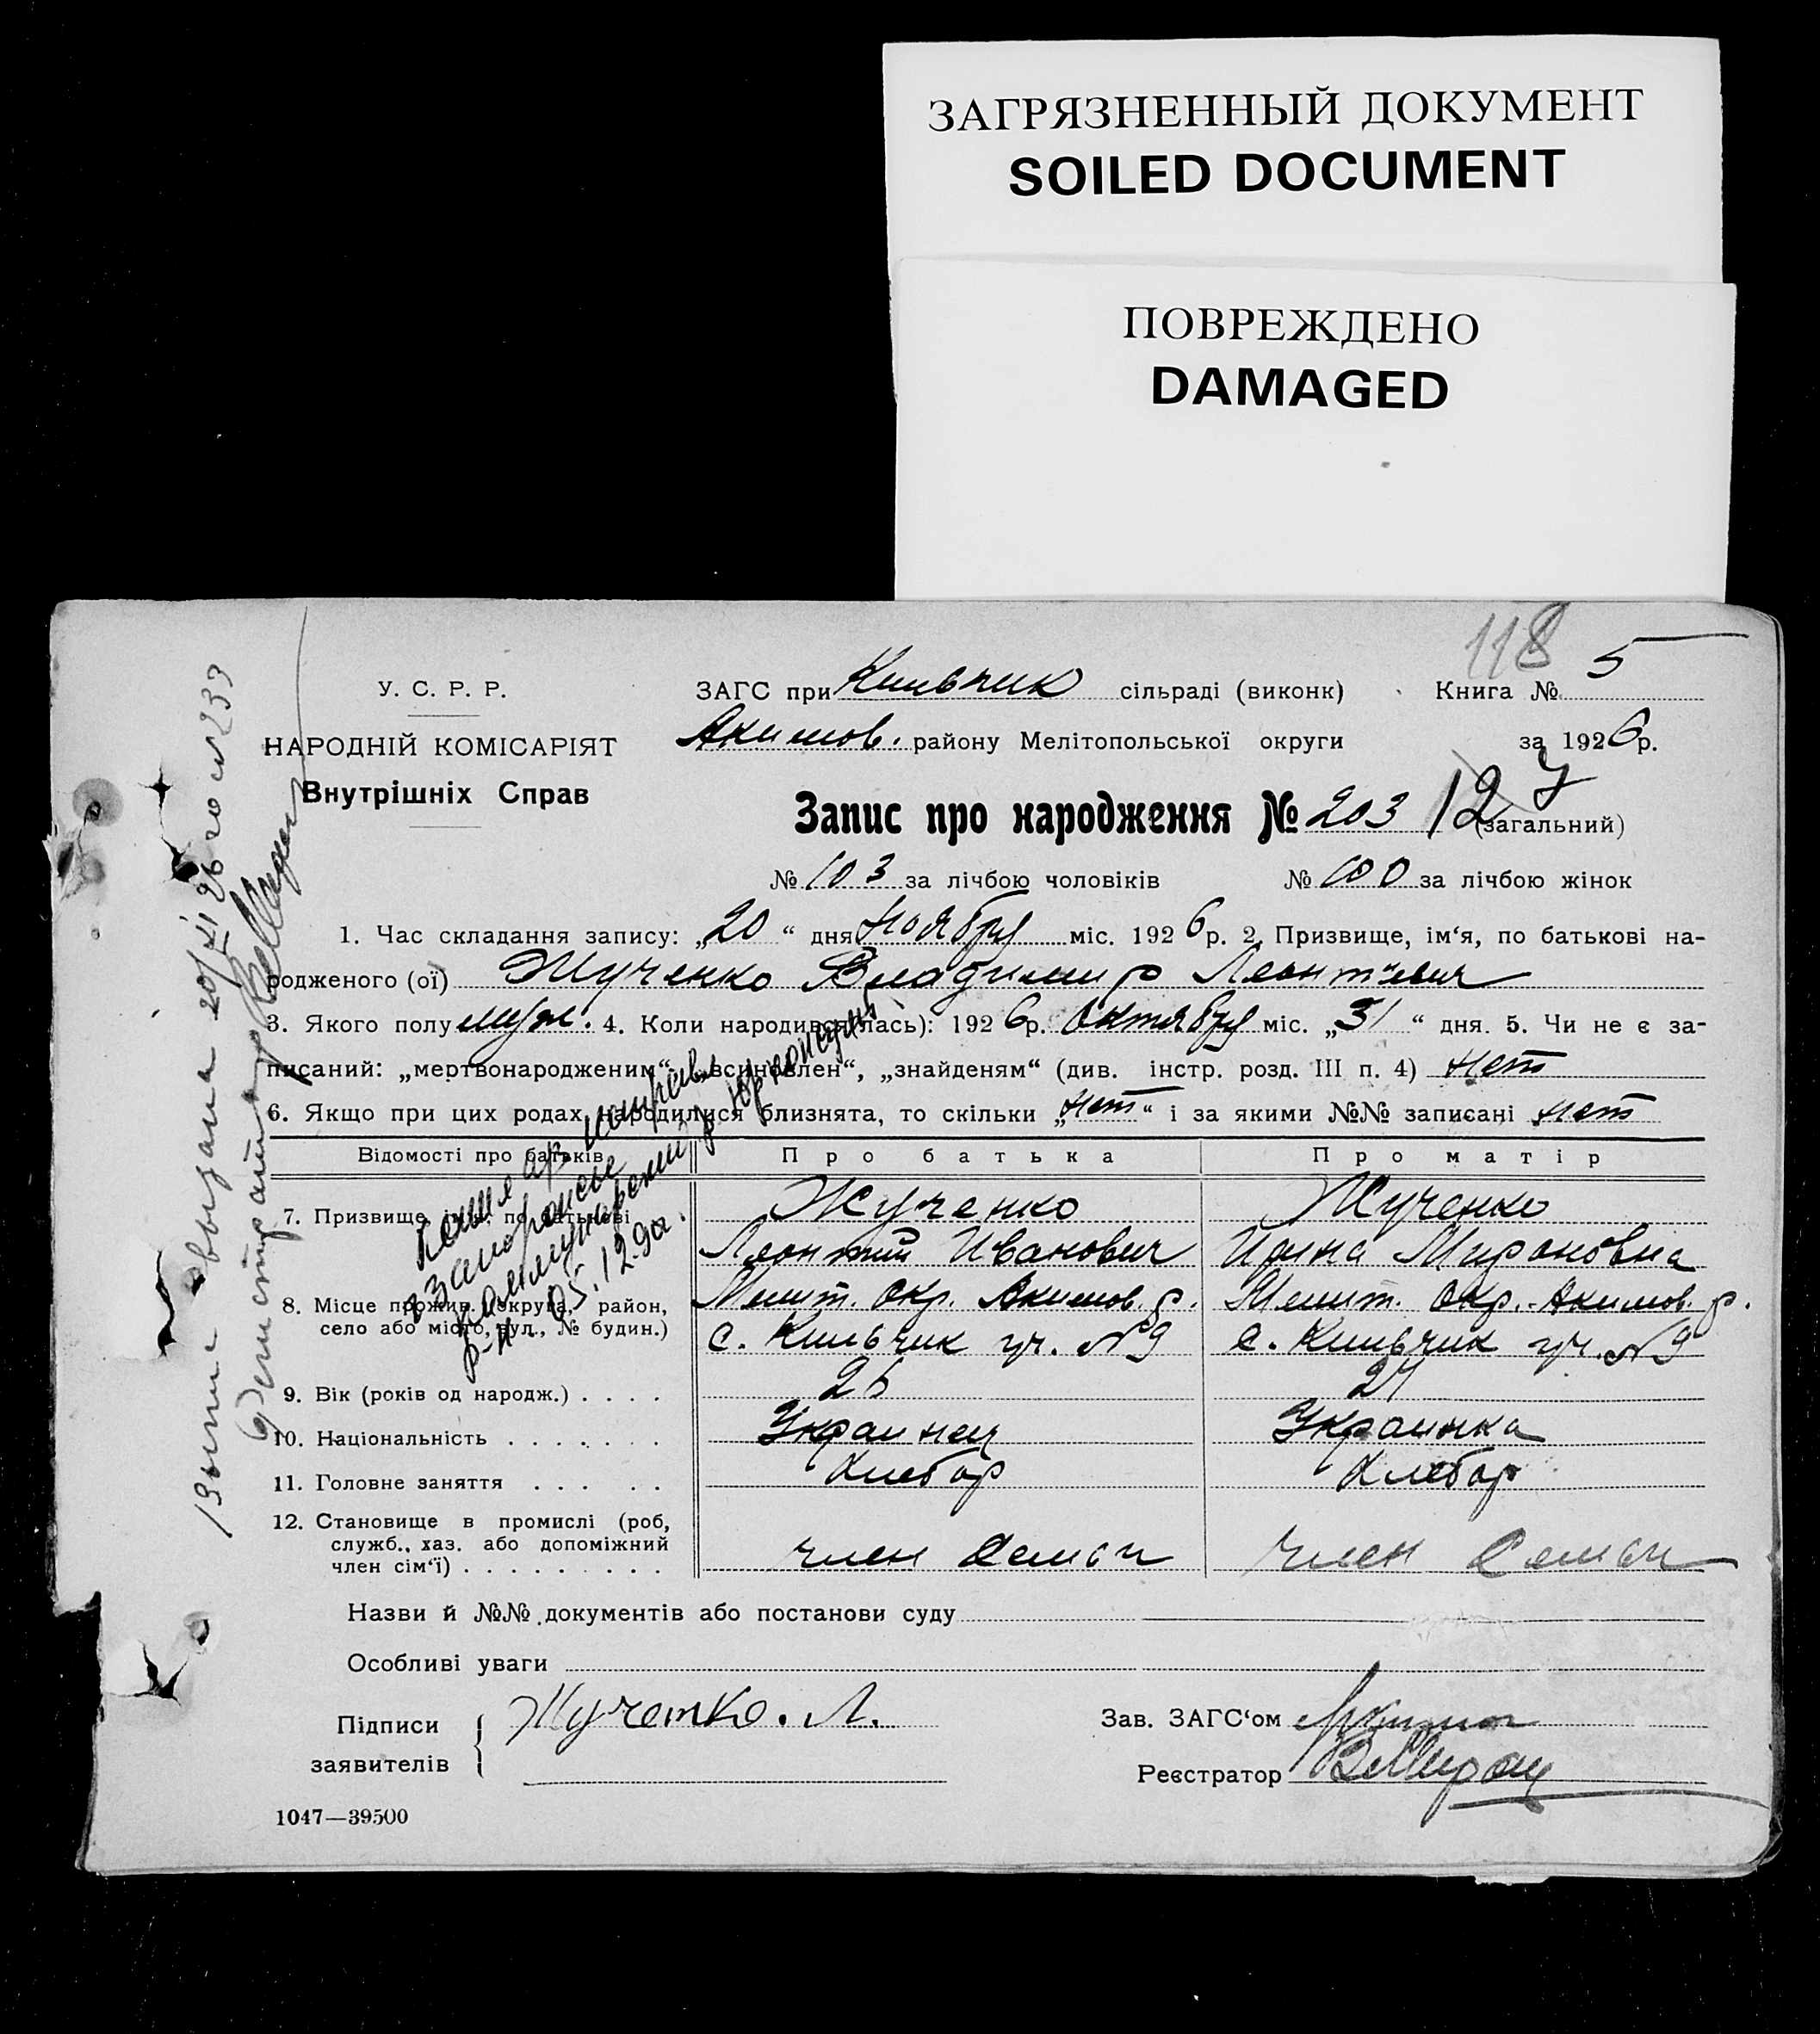 ЗАГРЯЗНЕННЫЙ ДОКУМЕНТ
SOILED DOCUMENT
ПОВРЕЖДЕНО
DAMAGED
118
У. С. Р. Р.
НАРОДНІЙ КОМІСАРІЯТ
Внутрішніх Справ
ЗАГС при Кильчик сільраді (виконк) Книга № 5
Акимов. району Мелітопольської округи за 1926 р.
Запис про народження № 203 127 (загальний)
№ 103 за лічбою чоловіків № 100 за лічбою жінок
1. Час складання запису: „20“ дня Ноября міс. 1926 р. 2. Призвище, ім‘я, по батькові на-
родженого (ої) Жученко Владимир Леонтьевич
3. Якого полу муж. 4. Коли народився(лась): 1926 р. Октября міс. „31“ дня. 5. Чи не є за-
писаний: „мертвонародженим“, „всиновлен“, „знайденям“ (див. інстр. розд. III п. 4) нет
6. Якщо при цих родах народилися близнята, то скільки „нет“ і за якими №№ записані нет
Відомості про батьків Про батька Про матір
7. Призвище, ім‘я, по батькові Жученко Жученко
Леонтий Иванович Ирина Мироновна
8. Місце прожив. (округа, район, Мелит. Окр. Акимов. р. Мелит. Окр. Акимов. р.
село або місто, вул., № будин.) с. Кильчик уч. №9 с. Кильчик уч. №9
9. Вік (років од народж.) . . . . 26 27
10. Національність . . . . . . . Украинец Украинка
11. Головне заняття . . . . . Хлебор Хлебор
12. Становище в промислі (роб,
служб., хаз. або допоміжний
член сім‘ї) . . . . . . . . . член семьи член семьи
Назви й №№ документів або постанови суду
Особливі уваги
Підписи заявителів Жученко. Л.
Зав. ЗАГС‘ом
Реєстратор
1047—39500
выпис выдана 20/XI 26 го №233
Регистратор
05.12.90г.